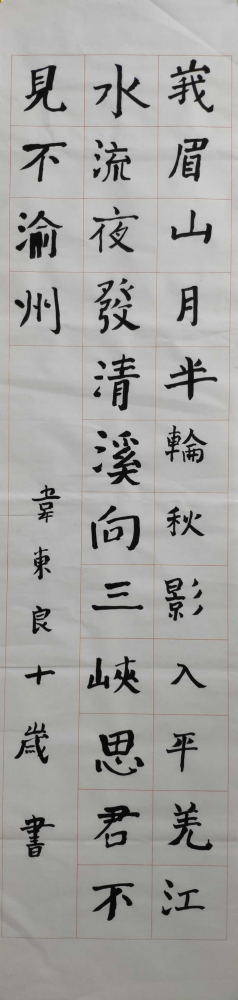 莪眉山月半輪秋影入平羌江
水流夜發清溪向三峽思君不
見不渝州
韋東良十歲書